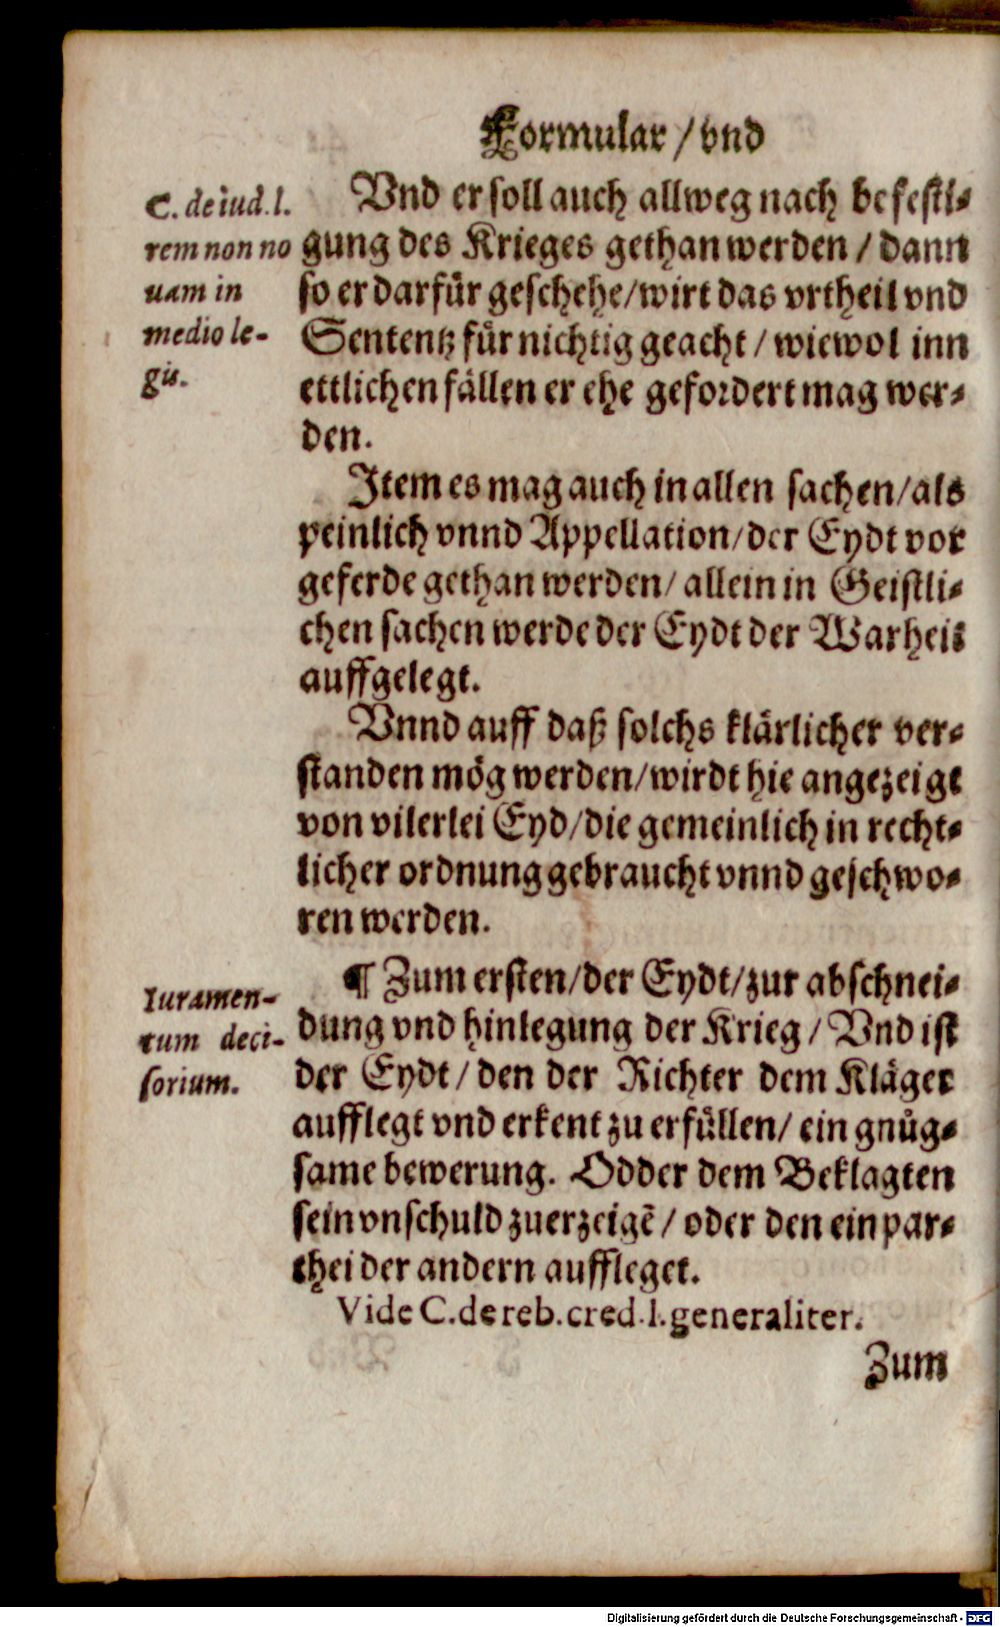 Formular / vnd
C. de iud. l.
rem non no
uam in
medio le-
gis.
Vnd er soll auch allweg nach befesti-
gung des Krieges gethan werden / dann
so er darfür geschehe / wirt das vrtheil vnd
Sententz für nichtig geacht / wiewol inn
ettlichen fällen er ehe gefordert mag wer-
den.
Item es mag auch in allen sachen / als
peinlich vnnd Appellation / der Eydt vor
geferde gethan werden / allein in Geistli-
chen sachen werde der Eydt der Warheit
auffgelegt.
Vnnd auff daß solchs klärlicher ver-
standen mög werden / wirdt hie angezeigt
von vilerlei Eyd / die gemeinlich in recht-
licher ordnung gebraucht vnnd geschwo-
ren werden.
Iuramen-
tum deci-
sorium.
¶ Zum ersten / der Eydt / zur abschnei-
dung vnd hinlegung der Krieg / Vnd ist
der Eydt / den der Richter dem Kläger
aufflegt vnd erkent zu erfüllen / ein gnůg-
same bewerung. Odder dem Beklagten
sein vnschuld zuerzeigẽ / oder den ein par-
thei der andern auffleget.
Vide C. de reb. cred. l. generaliter.
Zum
Digitalisierung gefördert durch die Deutsche Forschungsgemeinschaft - DFG